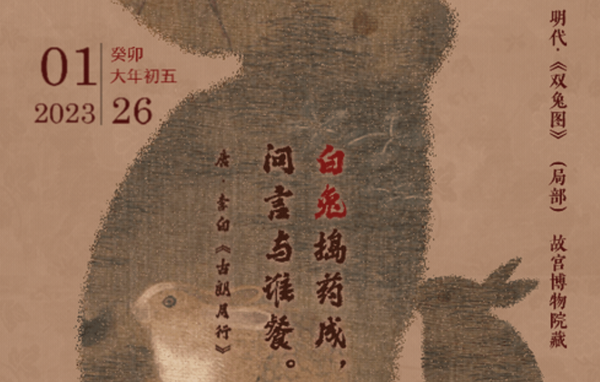 01
2023
癸卯
大年初五
26
明代·《双兔图》（局部） 故宫博物院藏
白兔捣药成，
问言与谁餐。
唐·李白《古朗月行》